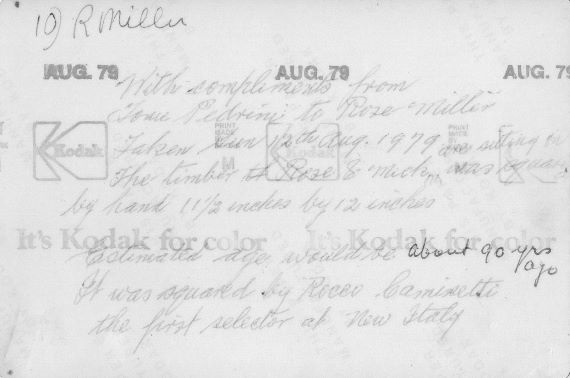 10) R Miller
AUG. 79 AUG. 79 AUG. 79
With compliments from
Pedrini to Rose Miller
Taken Sun 12th Aug. 1979
The timber Rose & Mick are sitting on was squared
by hand 11 1/2 inches by 12 inches
Kodak Kodak
PRINT MADE BY M
It's Kodak for color It's Kodak for color
Estimated age would be about 90 yrs
ago
It was squared by Rocco Caminotti
the first selector at New Italy